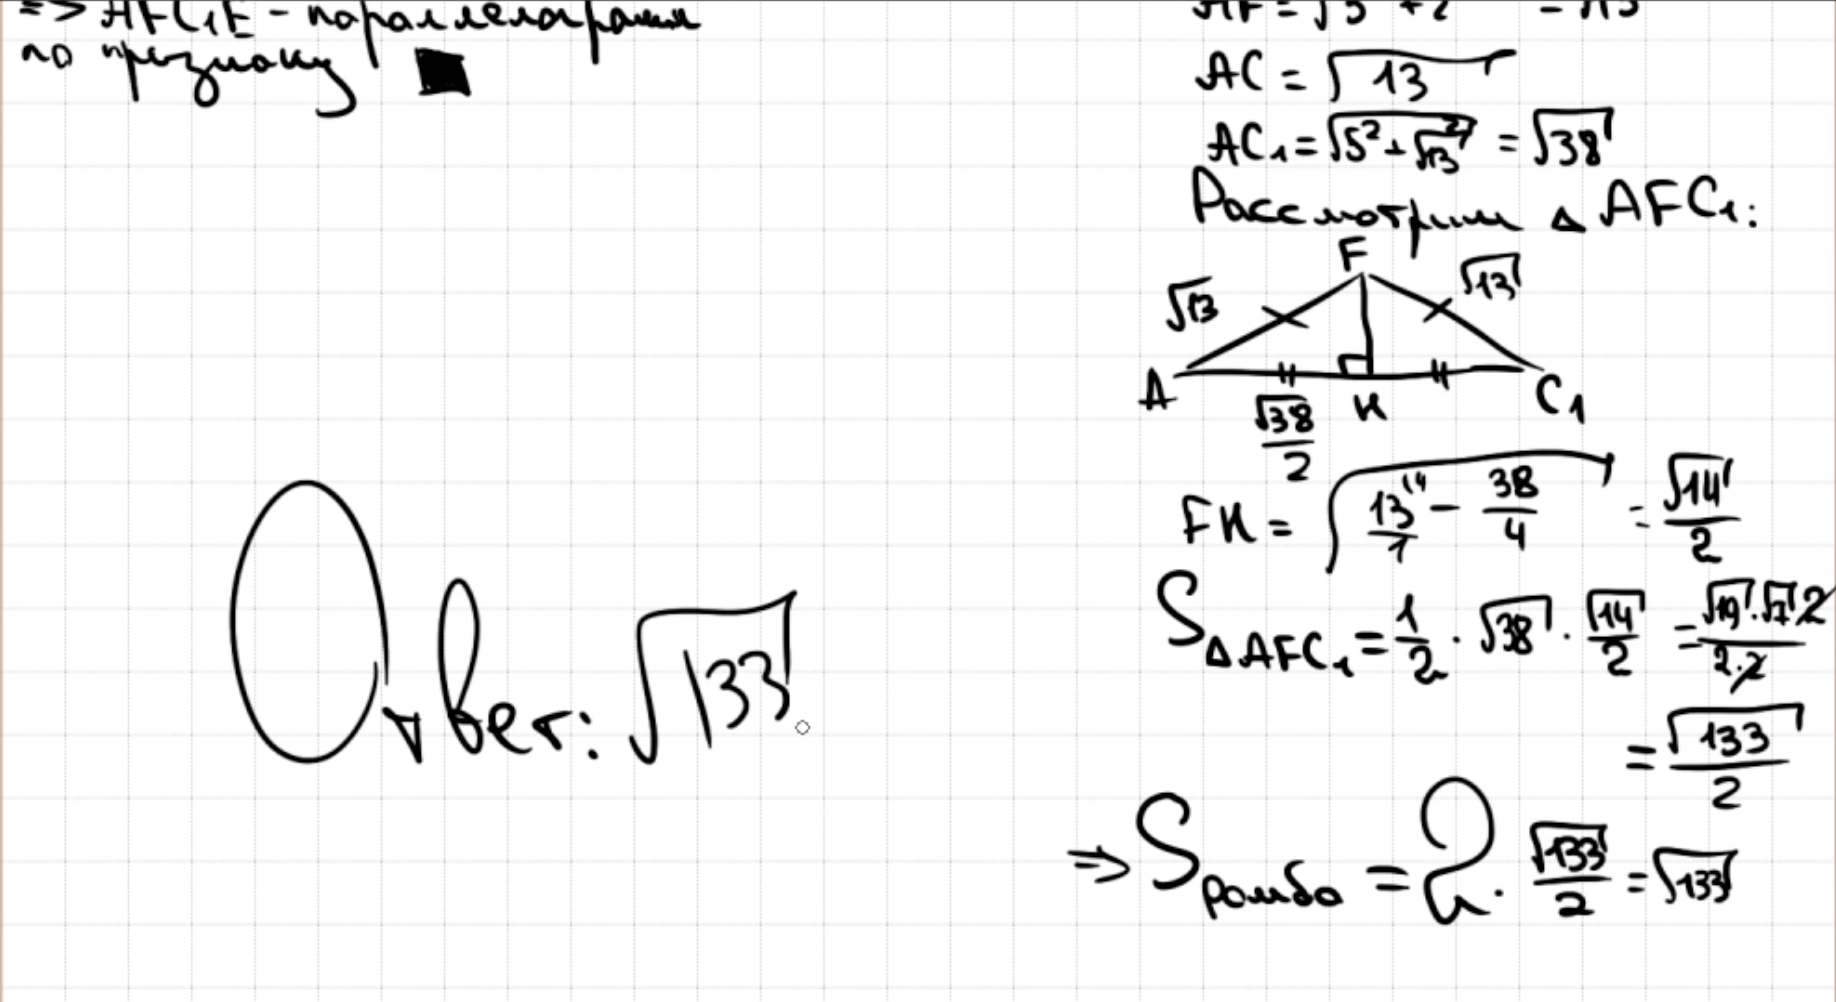 => AFC₁E - параллелограмм
по признаку
AF = √3² + 2² = √13
AC = √13
AC₁ = √5² + √13² = √38
Рассмотрим △ AFC₁:
F
√13 √13
A H C₁
√38/2
FH = √(13/1 - 38/4) = √14/2
S△AFC₁ = 1/2 · √38 · √14/2 = √19 · √7 · 2/2·2
= √133/2
=> Sромба = 2 · √133/2 = √133
Ответ: √133